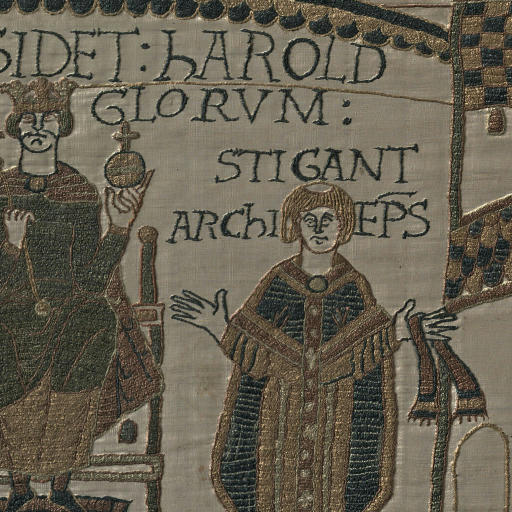 SIDET : hAROLD
GLORVM :
STIGANT
ARChI EP̅S